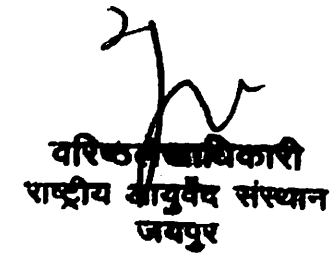 वरिष्ठ लेखाधिकारी
राष्ट्रीय आयुर्वेद संस्थान
जयपुर